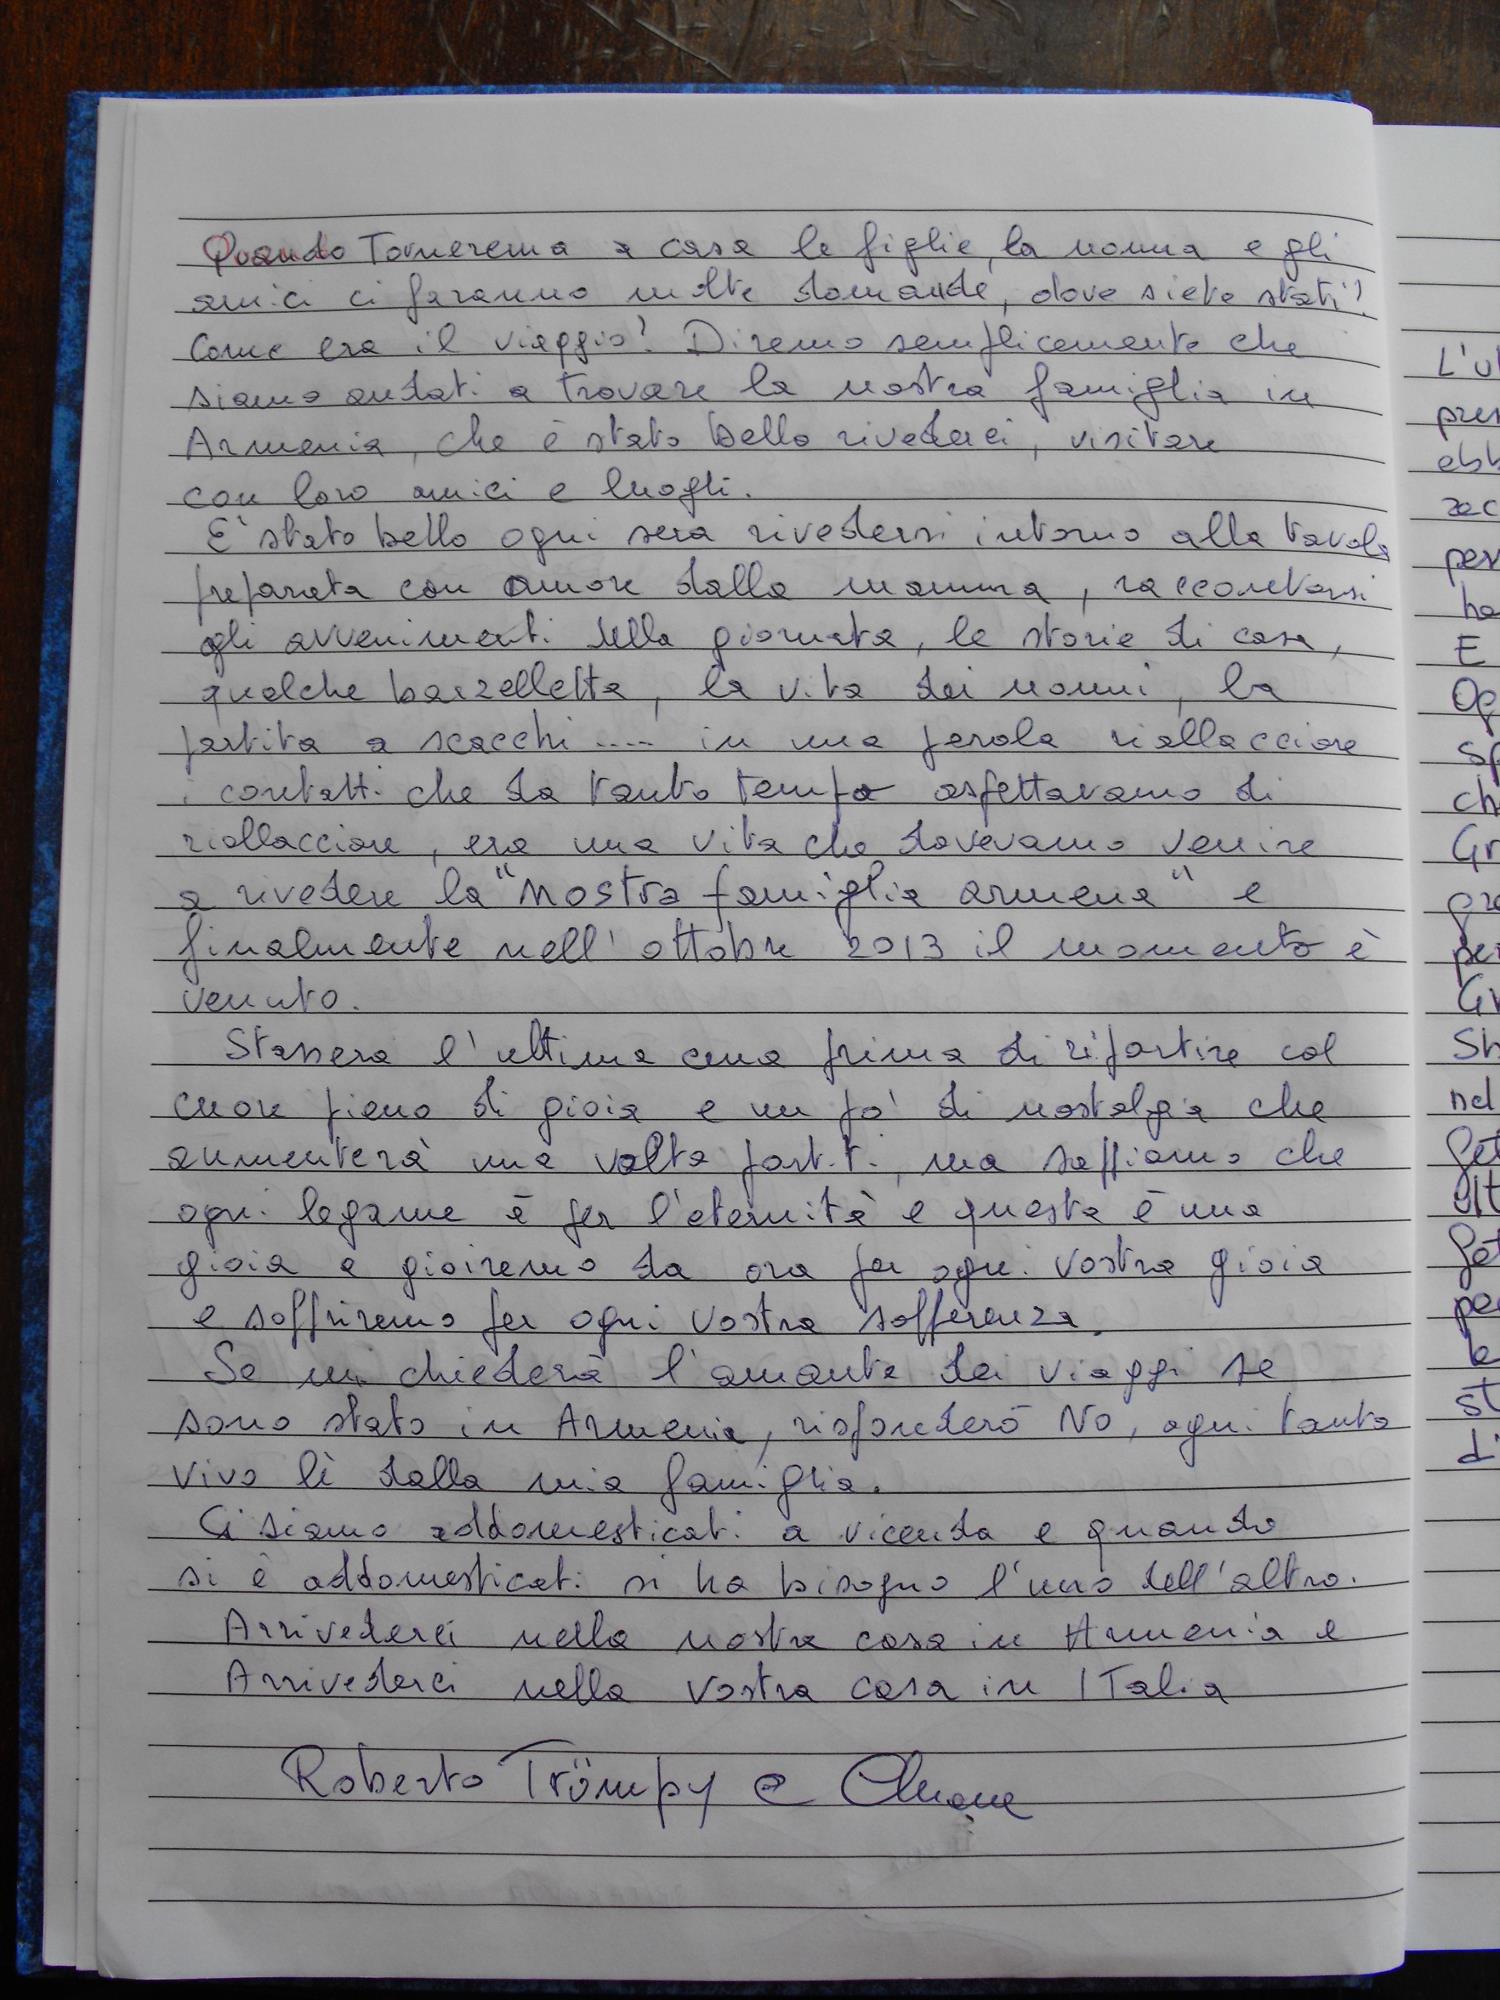 Quando Torneremo a casa le figlie, la nonna e gli
amici ci faranno molte domande, dove siete stati?
Come era il viaggio? Diremo semplicemente che
siamo andati a trovare la nostra famiglia in
Armenia, che è stato bello rivederci, visitare
con loro amici e luoghi.
E' stato bello ogni sera rivedersi intorno alla tavola
preparata con amore dalla mamma, raccontarsi
gli avvenimenti della giornata, le storie di casa,
qualche barzelletta, la vita dei nonni, la
partita a scacchi .... in una parola riallacciare
i contatti che da tanto tempo aspettavamo di
riallacciare, era una vita che dovevamo venire
a rivedere la "nostra famiglia armena" e
finalmente nell' ottobre 2013 il momento è
venuto.
Stasera l'ultima cena prima di ripartire col
cuore pieno di gioia e un po' di nostalgia che
aumenterà una volta partiti, ma sappiamo che
ogni legame è per l'eternità e questa è una
gioia e gioiremo da ora per ogni vostra gioia
e soffriremo per ogni vostra sofferenza.
Se mi chiederà l'amante dei viaggi se
sono stato in Armenia, risponderò NO, ogni tanto
vivo lì dalla mia famiglia.
Ci siamo addomesticati a vicenda e quando
si è addomesticati si ha bisogno l'uno dell'altro.
Arrivederci nella nostra casa in Armenia e
Arrivederci nella vostra casa in ITalia
Roberto Trümpy e
L'ul
pre
ebb
rac
per
ha
E
Og
sp
ch
Gr
gra
per
Gr
Sh
nel
get
ult
get
per
le
st
di